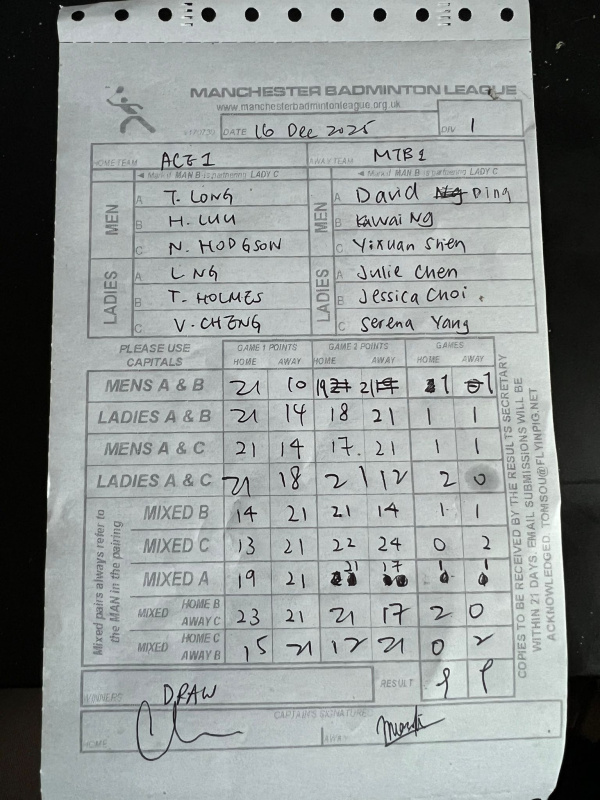 MANCHESTER BADMINTON LEAGUE
www.manchesterbadmintonleague.org.uk
DATE 16 Dec 2025 DIV 1
HOME TEAM ACE 1 AWAY TEAM MTB 1
◄ Mark if MAN B is partnering LADY C ◄ Mark if MAN B is partnering LADY C
MEN A T. LONG MEN A David Ng Ding
B H. LUU B Kawai Ng
C N. HODGSON C Yixuan Shen
LADIES A L NG LADIES A Julie Chen
B T. HOLMES B Jessica Choi.
C V. CHENG C Serena Yang
PLEASE USE CAPITALS GAME 1 POINTS GAME 2 POINTS GAMES
HOME AWAY HOME AWAY HOME AWAY
MENS A & B 21 10 19 21 1 1
LADIES A & B 21 14 18 21 1 1
MENS A & C 21 14 17. 21 1 1
LADIES A & C 21 18 21 12 2 0
MIXED B 14 21 21 14 1 1
MIXED C 13 21 22 24 0 2
MIXED A 19 21 21 17 1 1
MIXED HOME B AWAY C 23 21 21 17 2 0
MIXED HOME C AWAY B 15 21 12 21 0 2
Mixed pairs always refer to
the MAN in the pairing
WINNERS DRAW RESULT 9 9
CAPTAIN'S SIGNATURE
HOME AWAY
COPIES TO BE RECEIVED BY THE RESULTS SECRETARY
WITHIN 21 DAYS. EMAIL SUBMISSIONS WILL BE
ACKNOWLEDGED. TOMSOU@FLYINPIG.NET